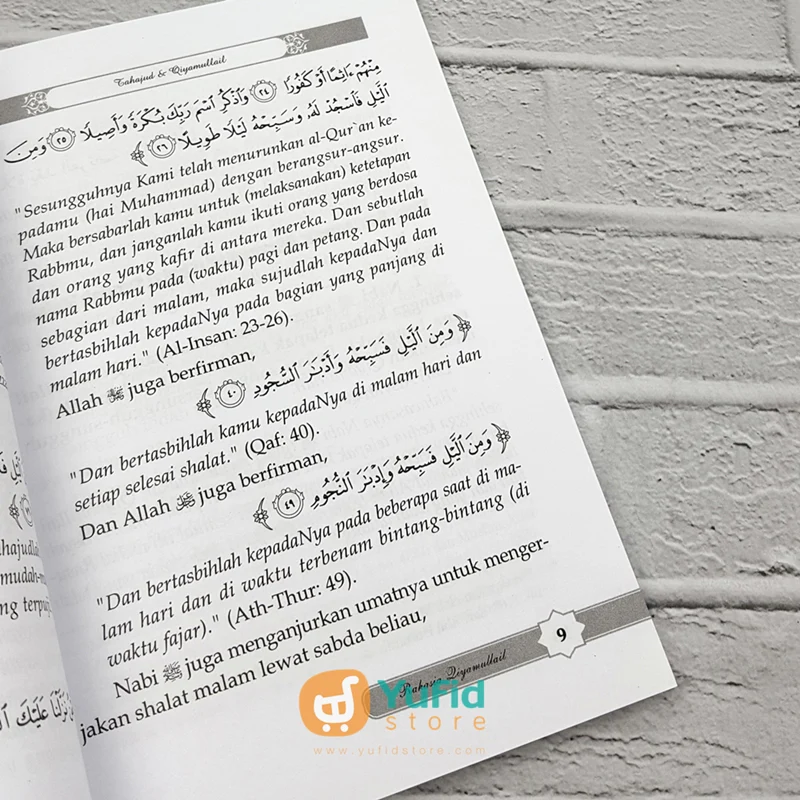 Tahajud & Qiyamullail
مِنْهُمْ ءَاثِمًا أَوْ كَفُورًا ﴿٢٤﴾ وَٱذْكُرِ ٱسْمَ رَبِّكَ بُكْرَةً وَأَصِيلًا ﴿٢٥﴾ وَمِنَ
ٱلَّيْلِ فَٱسْجُدْ لَهُۥ وَسَبِّحْهُ لَيْلًا طَوِيلًا ﴿٢٦﴾
"Sesungguhnya Kami telah menurunkan al-Qur`an ke-
padamu (hai Muhammad) dengan berangsur-angsur.
Maka bersabarlah kamu untuk (melaksanakan) ketetapan
Rabbmu, dan janganlah kamu ikuti orang yang berdosa
dan orang yang kafir di antara mereka. Dan sebutlah
nama Rabbmu pada (waktu) pagi dan petang. Dan pada
sebagian dari malam, maka sujudlah kepadaNya dan
bertasbihlah kepadaNya pada bagian yang panjang di
malam hari." (Al-Insan: 23-26).
Allah ﷻ juga berfirman,
وَمِنَ ٱلَّيْلِ فَسَبِّحْهُ وَأَدْبَٰرَ ٱلسُّجُودِ ﴿٤٠﴾
"Dan bertasbihlah kamu kepadaNya di malam hari dan
setiap selesai shalat." (Qaf: 40).
Dan Allah ﷻ juga berfirman,
وَمِنَ ٱلَّيْلِ فَسَبِّحْهُ وَإِدْبَٰرَ ٱلنُّجُومِ ﴿٤٩﴾
"Dan bertasbihlah kepadaNya pada beberapa saat di ma-
lam hari dan di waktu terbenam bintang-bintang (di
waktu fajar)." (Ath-Thur: 49).
Nabi ﷺ juga menganjurkan umatnya untuk menger-
jakan shalat malam lewat sabda beliau,
9
Rahasia Qiyamullail
Yufid
store
www.yufidstore.com